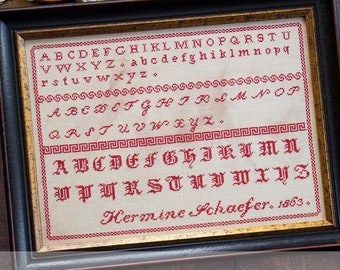 A B C D E F G H I J K L M N O P Q R S T U
V W X Y Z . a b c d e f g h i j k l m n o p q
r s t u v w x y z .
A B C D E F G H I K L M N O P
Q R S T U V W X Y Z .
A B C D E F G H I K L M N
O P Q R S T U V W X Y Z
Hermine Schaefer. 1863.